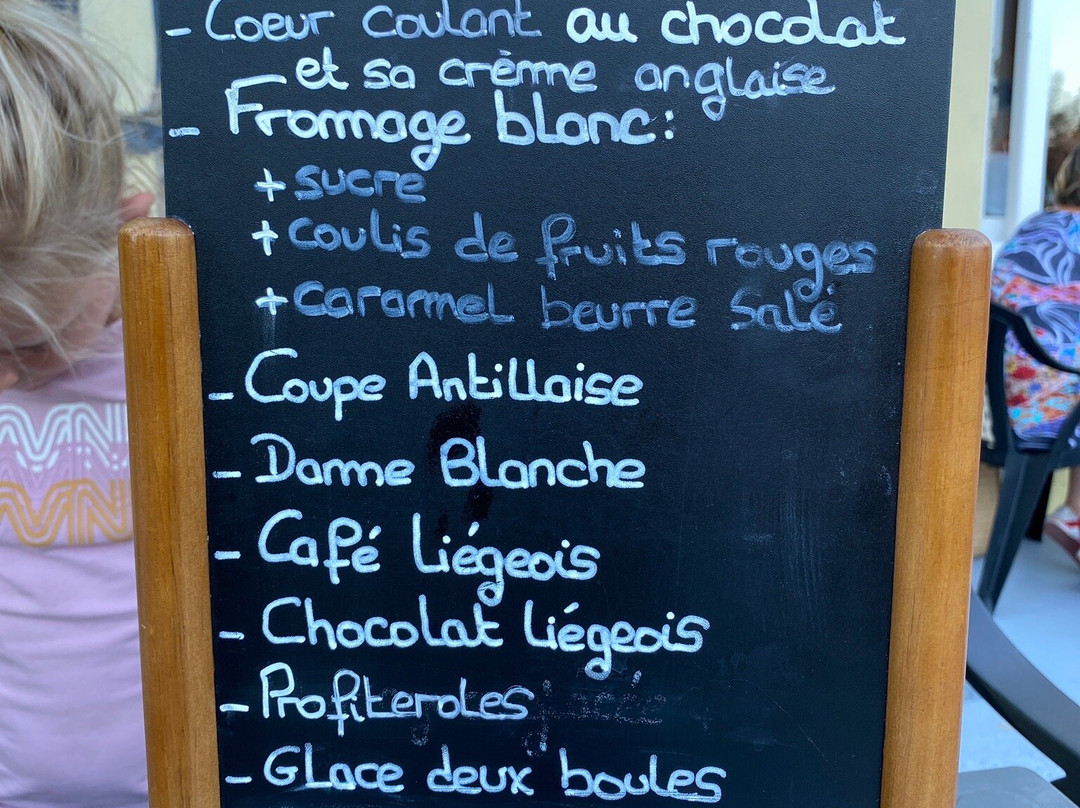 - Coeur coulant au chocolat
et sa crème anglaise
- Fromage blanc:
+ sucre
+ coulis de fruits rouges
+ caramel beurre salé
- Coupe Antillaise
- Dame Blanche
- Café Liégeois
- Chocolat Liégeois
- Profiteroles
- Glace deux boules